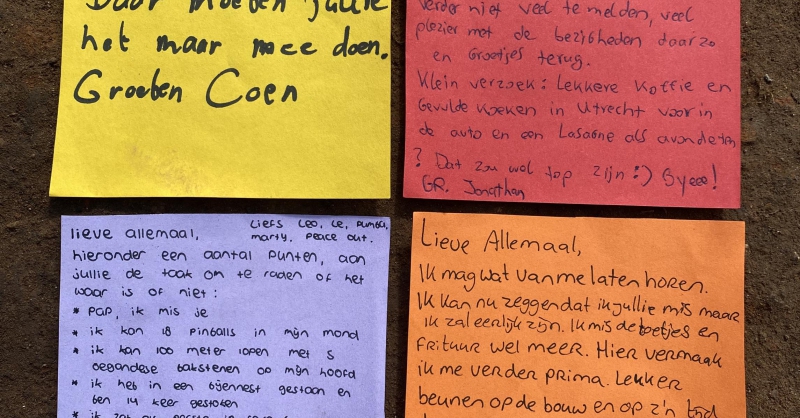 Daar moeten jullie
het maar mee doen.
Groeten Coen
verder niet veel te melden, veel
plezier met de bezigheden daarzo
en Groetjes terug.
Klein verzoek: Lekkere Koffie en
Gevulde Koeken in Utrecht voor in
de auto en een Lasagne als avondeten
? Dat zou wel top zijn :) Byeee!
GR. Jonathan
lieve allemaal,
Liefs Leo, Le, Pumba,
marty, peace out.
hieronder een aantal punten, aan
jullie de taak om te raden of het
waar is of niet:
* pap, ik mis je
* ik kan 18 pinballs in mijn mond
* ik kan 100 meter lopen met 5
oegandese bakstenen op mijn hoofd
* ik heb in een bijennest gestaan en
ben 14 keer gestoken
Lieve Allemaal,
Ik mag wat van me laten horen.
Ik kan nu zeggen dat ik jullie mis maar
ik zal eerlijk zijn. Ik mis de toetjes en
frituur wel meer. Hier vermaak
ik me verder prima. Lekker
beunen op de bouw en op z'n tijd